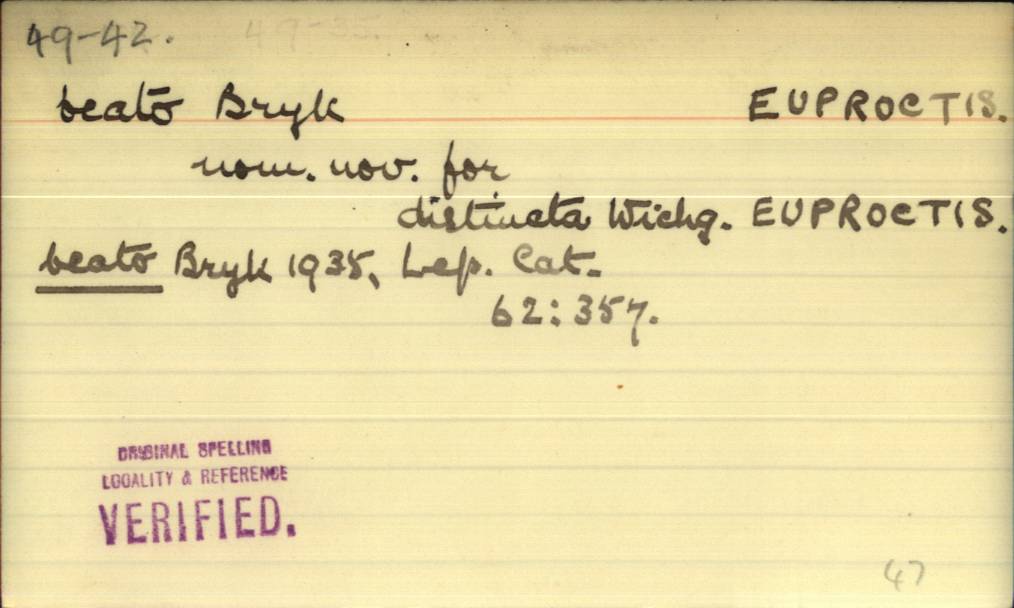 49-42.
beato Bryk EUPROCTIS.
nom. nov. for
distincta Wichg. EUPROCTIS.
beato Bryk 1935, Lep. Cat.
62: 357.
ORIGINAL SPELLING
LOCALITY & REFERENCE
VERIFIED.
47